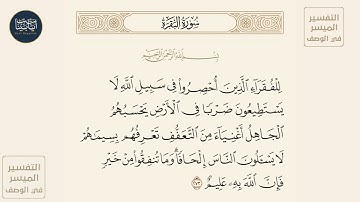 سُورَةُ البَقَرَةِ
التفسير
الميسر
في الوصف
بِسْمِ اللَّهِ الرَّحْمَٰنِ الرَّحِيمِ
لِلْفُقَرَآءِ ٱلَّذِينَ أُحْصِرُوا۟ فِى سَبِيلِ ٱللَّهِ لَا
يَسْتَطِيعُونَ ضَرْبًا فِى ٱلْأَرْضِ يَحْسَبُهُمُ
ٱلْجَاهِلُ أَغْنِيَآءَ مِنَ ٱلتَّعَفُّفِ تَعْرِفُهُم بِسِيمَٰهُمْ
لَا يَسْـَٔلُونَ ٱلنَّاسَ إِلْحَافًا ۗ وَمَا تُنفِقُوا۟ مِنْ خَيْرٍ
فَإِنَّ ٱللَّهَ بِهِۦ عَلِيمٌ ٢٧٣
التفسير
الميسر
في الوصف